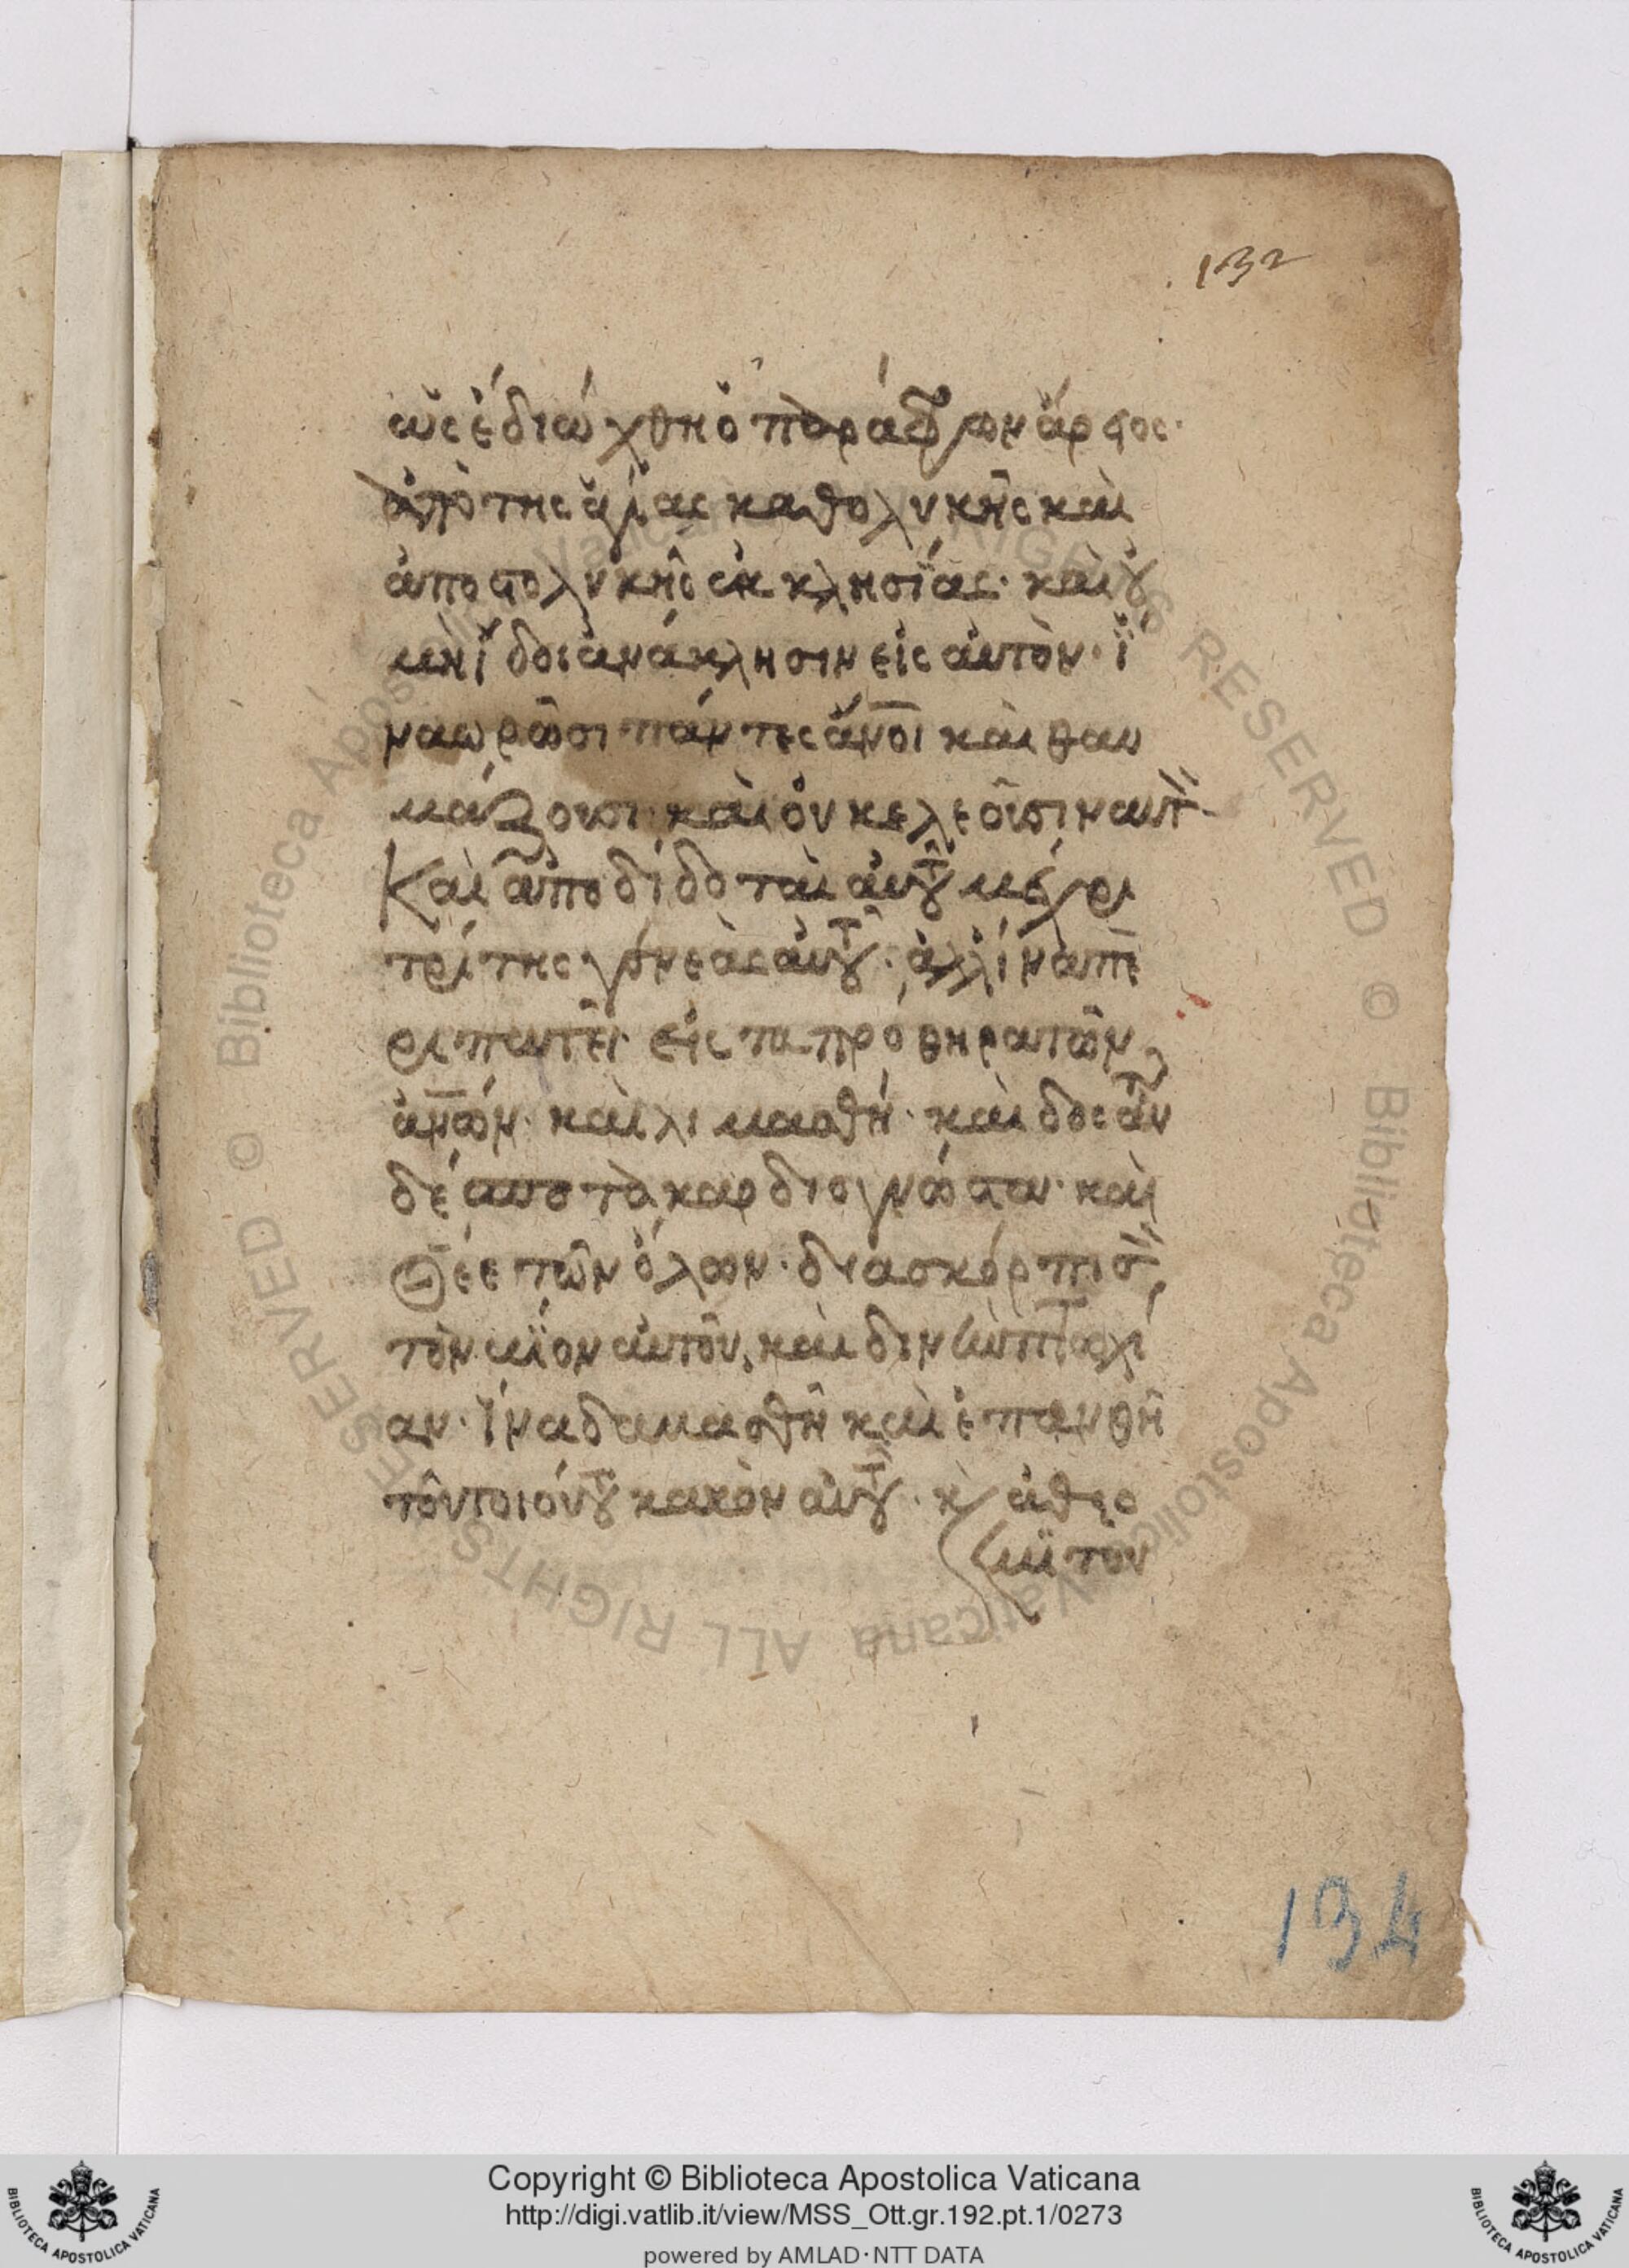 132
αὖς ἐδιώχθη ὁ παράφρων ἄρϊος·
ἀπὸ της ἁγίας καθολυκῆς καὶ
ἀποστολυκῆς ἐκκλησίας· καὶ οὐ
μὴ ἴδοι ἀνάκλησιν εἰς αὐτὸν· ἵ
να ὡρῶσι πάντες ἄνοι καὶ θαυ
μάζουσι καὶ οὐκ ελεοῦσιν αὐτ
Καὶ ἀποδίδοται αὐτοῦ μέχρι
τρίτης γενεὰς αὐτοῦ· ἀλλ' ἵνα πε
ριπατεῖ εἰς τα πρόθηρα τῶν
ἀνῶν· καὶ λιμασθῆ· καὶ
δέσποτα καρδιογνῶστα· καὶ
Θεὲ τῶν ὅλων· διασκόρπισ
τὸν βίον αὐτοῦ, καὶ
αν· ἵνα δαμασθῆ καὶ ἐπανθῆ
τοῦ τοιούτου κακὸν αὐτοῦ· κ
134
Copyright © Biblioteca Apostolica Vaticana
http://digi.vatlib.it/view/MSS_Ott.gr.192.pt.1/0273
powered by AMLAD·NTT DATA
BIBLIOTECA APOSTOLICA VATICANA
BIBLIOTECA APOSTOLICA VATICANA
© Biblioteca Apostolica Vaticana ALL RIGHTS RESERVED